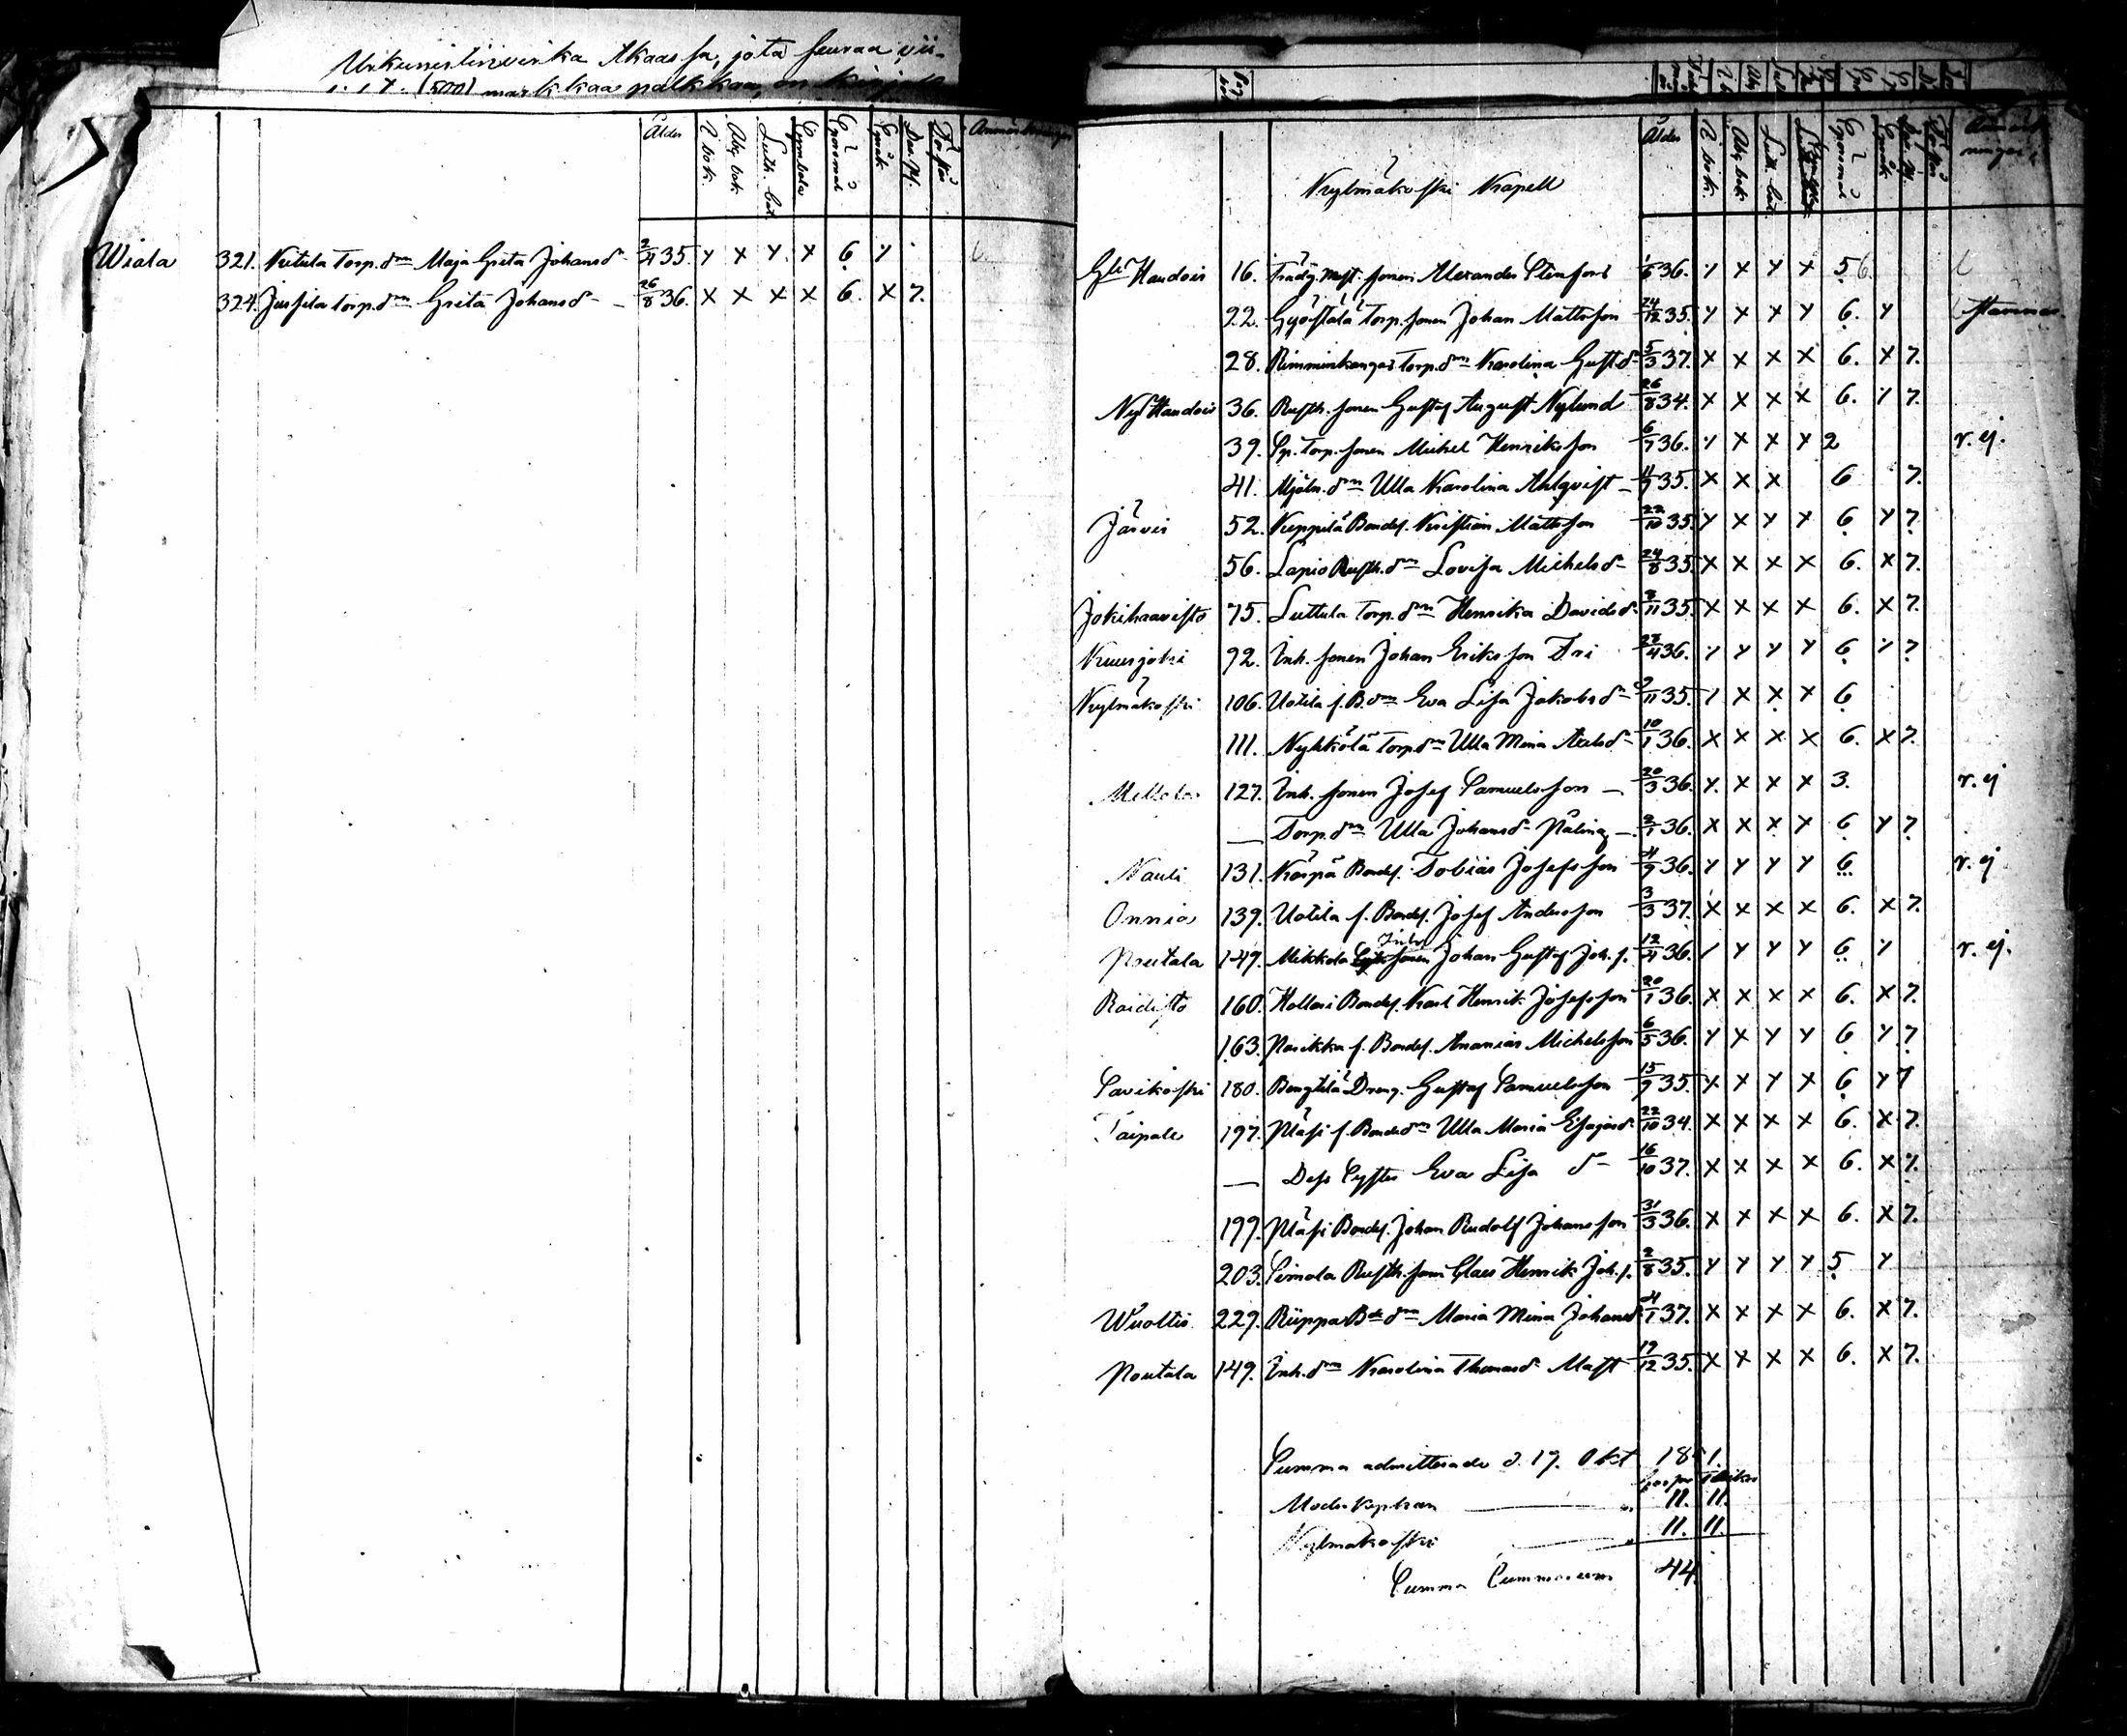 Urkuristinvirka Akaassa, jota seuraa vii-
(500) markkaa palkkaa, on
Ålder I bok. Abc bok Luth. Cat. Symbola Spörsmål Språk Dav. Ps. Anmärkningar
Wiala 321. Torp. dr Maja Greta Johansdr 2/4 35. x x x x 6 x
324. Jussila Torp. dr Greta Johansdr 26/8 36. x x x x 6. x 7.
Kylmäkoski Kapell
Ålder I bok. Abc bok Luth. Cat. Spörsmål Språk Anmärkningar
Gl Haudois 16. Trädg. mäst. sonen Alexander Stenfors 1/6 36. x x x x 5 6
22. Gyöstälä Torp. sonen Johan Mattsson 24/12 35. x x x x 6. x stammar
28. Rimminkangas Torp. dr Karolina Gustdr 5/3 37. x x x x 6. x 7.
Nyl Haudois 36. Rusth. sonen Gustaf August Nylund 26/8 34. x x x x 6. x 7.
39. Sp. Torp. sonen Michel Henriksson 6/7 36. x x x x 2 r. ej.
41. Mjöln. dr Ulla Karolina Ahlqvist 11/7 35. x x x 6 7.
Järvis 52. Keppilä Bondes. Kristian Mattsson 22/10 35. x x x x 6 x 7.
56. Lapio Rusth. dr Lovisa Michelsdr 24/8 35. x x x x 6. x 7.
Jokihaavisto 75. Luttula Torp. dr Henrika Davidsdr 8/11 35. x x x x 6. x 7.
Kuurjoki 92. Inh. sonen Johan Eriksson Fri 28/4 36. x x x x 6 x 7
Kylmäkoski 106. Uotila f. B. dr Eva Lisa Jakobsdr 9/11 35. x x x x 6
111. Nyhkölä Torp. dr Ulla Mina Axelsdr 10/1 36. x x x x 6. x 7.
Mellola 127. Inh. sonen Josef Samuelsson 20/3 36. x x x x 3. r. ej
— Torp. dr Ulla Johansdr Påling 2/1 36. x x x x 6 x 7
Nauli 131. Käspä Bondes. Tobias Josefsson 4/9 36. x x x x 6 r. ej
Onnia 139. Uotila f. Bondes. Josef Andersson 3/3 37. x x x x 6. x 7.
Poutala 149. Mikkola sonen Johan Gustaf Joh. s. 12/4 36. x x x x 6 x r. ej.
Raidisto 160. Hollari Bondes. Karl Henrik Josefsson 20/1 36. x x x x 6. x 7.
163. Parikka f. Bondes. Ananias Michelsson 6/5 36. x x x x 6 x 7
Savikoski 180. Bengtilä Dreng. Gustaf Samuelsson 15/9 35. x x x x 6 x 7
Taipale 197. Mäsi f. Bonde dr Ulla Maria Esajasdr 22/10 34. x x x x 6. x 7.
— Dess Syster Eva Lisa dr 16/10 37. x x x x 6. x 7.
199. Mäsi Bondes. Johan Rudolf Johansson 31/3 36. x x x x 6. x 7.
203. Simola Rusth. son Claes Henrik Joh. s. 2/8 35. x x x x 5 x
Wuoltis 229. Riippa Bde dr Maria Mina Johansdr 4/1 37. x x x x 6. x 7.
Poutala 149. Inh. dr Karolina Thomasdr Mast 17/12 35. x x x x 6. x 7.
Summa admitterade d. 19. Okt 1851.
Gossar Flickor
Moderkyrkan 11. 11.
Kylmäkoski 11. 11.
Summa Summarum 44.